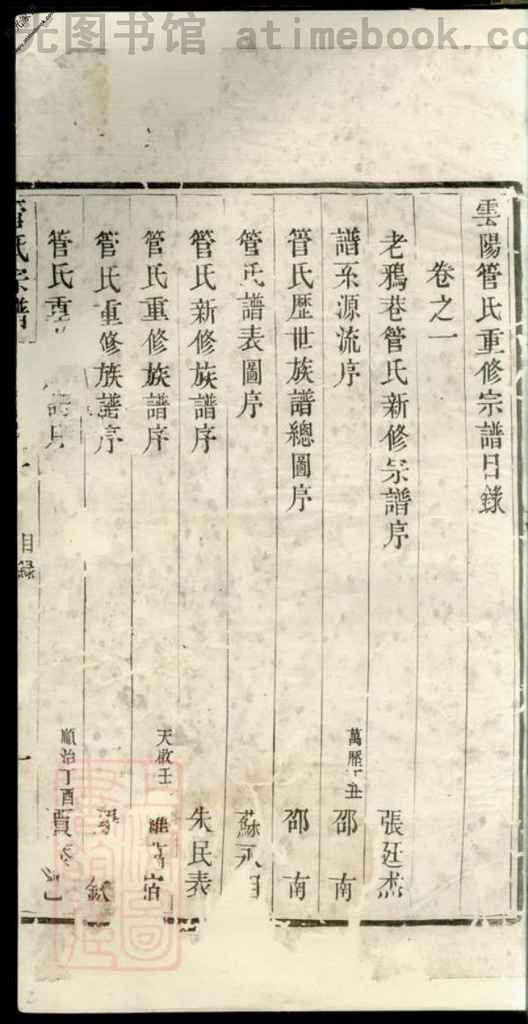 光图书馆 atimebook.com
雲陽管氏重修宗譜目錄
卷之一
老鴉巷管氏新修宗譜序 張廷杰
譜系源流序 萬歷丁丑 邵南
管氏歷世族譜總圖序 邵南
管氏譜表圖序 蘇
管氏新修族譜序 朱民表
管氏重修族譜序 天啟壬
管氏重修族譜序 欽
管氏重 譜序 順治丁酉 賈
管氏宗譜 目錄 一